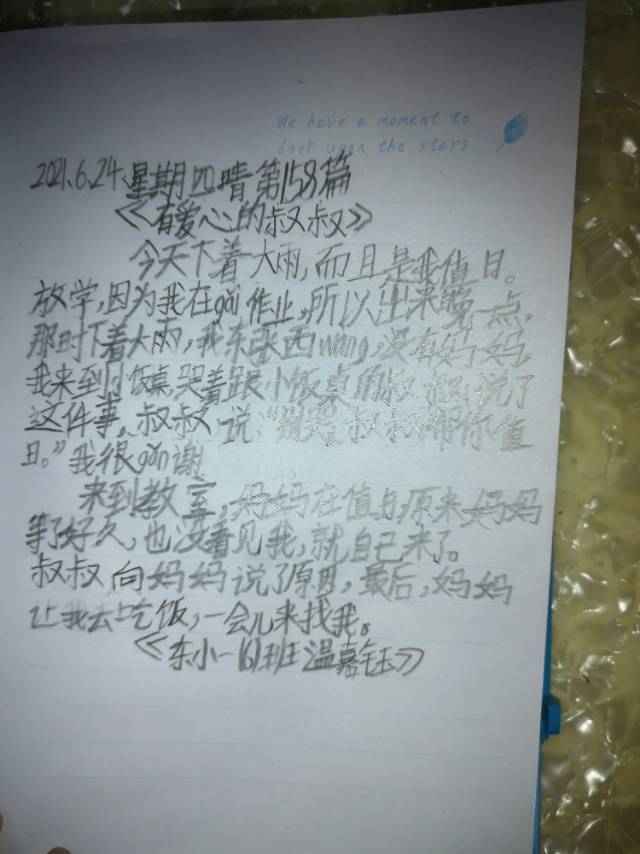 We have a moment to
look upon the stars.
2021.6.24.星期四晴第158篇
《有爱心的叔叔》
今天下着大雨,而且是我值日。
放学,因为我在gǎi作业,所以出来晚一点,
那时下着大雨,我东张西wàng,没有妈妈,
我来到小饭桌哭着跟小饭桌的叔叔说了
这件事。叔叔说“别哭,叔叔帮你值
日。”我很gǎn谢
来到教室,妈妈在值日,原来妈妈
等了好久,也没看见我,就自己来了。
叔叔向妈妈说了原因,最后,妈妈
让我去吃饭,一会儿来找我。
《东小一(6)班温嘉钰》